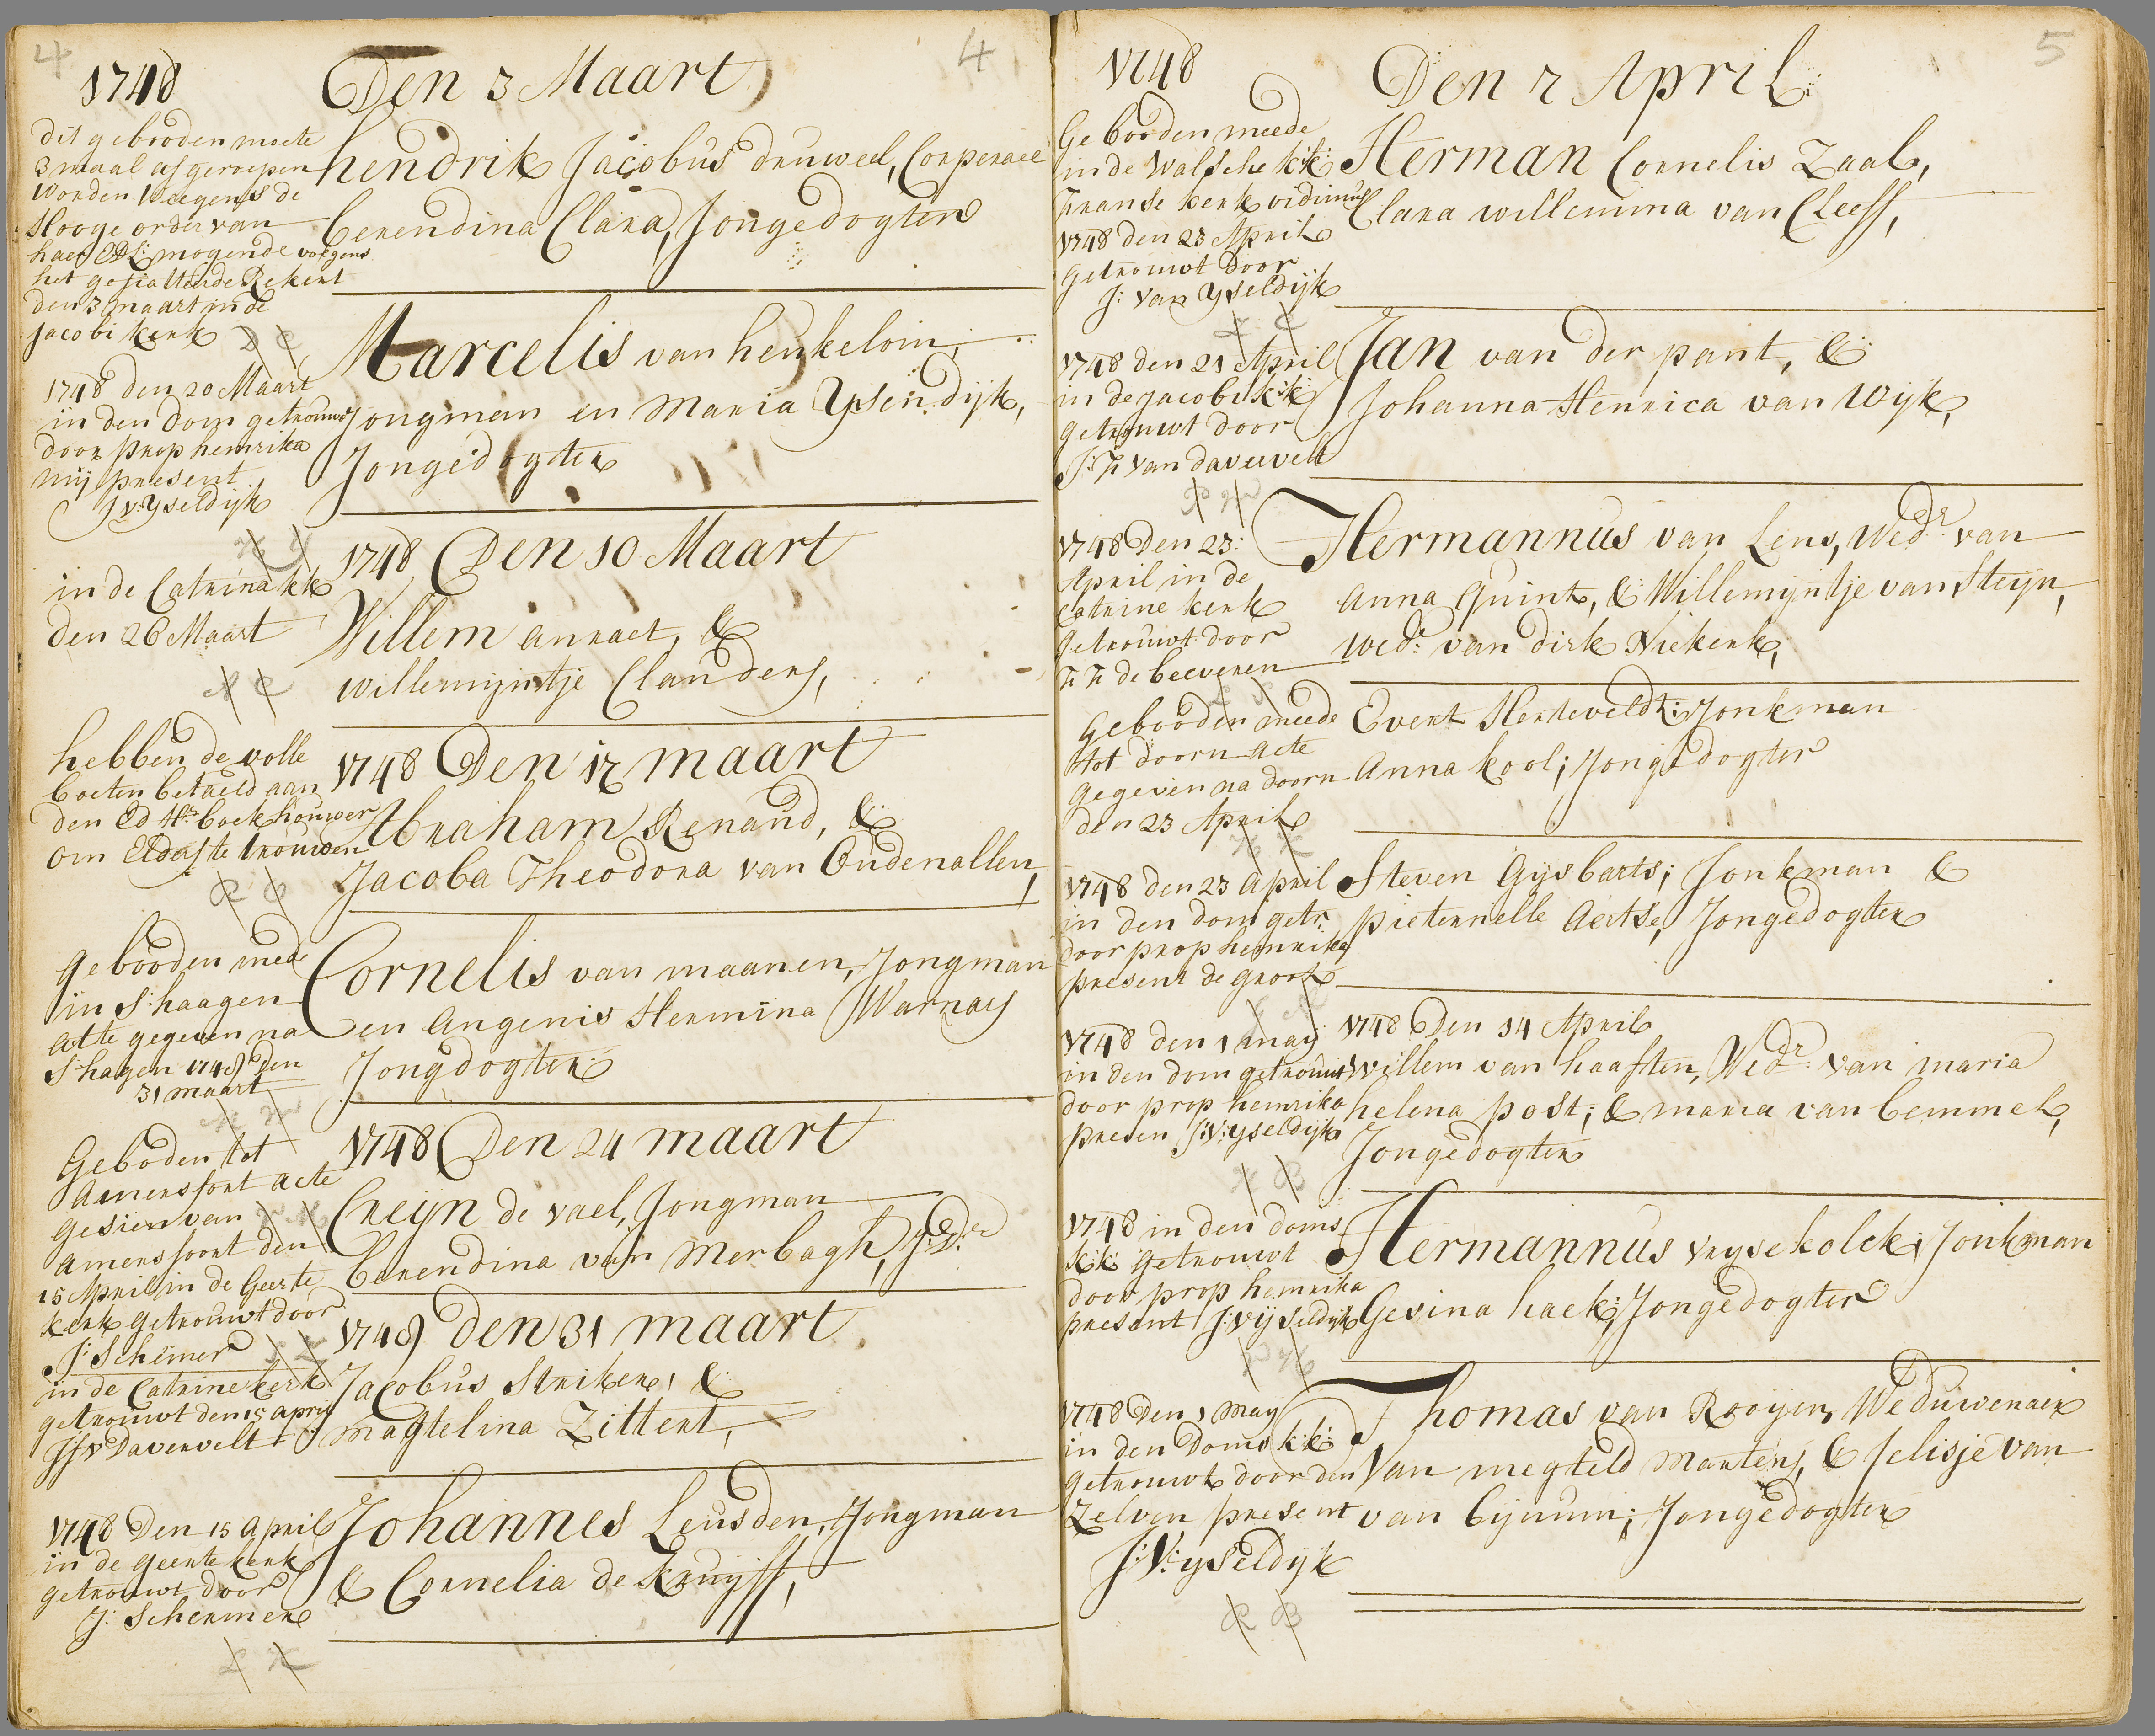 4
4
1748
Den 3 Maart
dit gebooden moete
3 maal afgeroepen
worden weegens de
Hooge order van
haer Ed: mogende volgens
het Rekent
den 3 maart in de
Jacobi kerk
hendrik Jacobus druweel, Corperaeel
berendina Clara, Jongedogter
1748 den 20 Maart
in den dom getrouwt
door prop hemrika
mij present
J v: Yseldijk
Marcelis van henkelom,
Jongman en Maria Ysendijk,
Jongedogter
in de Catrina kk
den 26 Maart
1748 Den 10 Maart
Willem anraet, &
willemijntje Clanders,
hebben de volle
boeten betaeld aan
den Ed Hr boekhouwer
om Elders te trouwen
1748 Den 17 maart
Abraham Renaud, &
Jacoba Theodora van Oudenallen,
gebooden mede
in S:haagen
atte gegeven na
S:hagen 1748 den
31 maart
Cornelis van maanen, Jongman
en Angenis Hermina Warnars
Jongdogter
Geboden tot
Amersfort acte
gesien van
Amersfoort den
15 April in de Geerte
kerk getrouwt door
J: Schermer
1748 Den 24 maart
Creijn de vael, Jongman
berendina van Merbagh, J:D:
in de Catrine kerk
getrouwt den 15 april
J f v Davervelt
1748 den 31 maart
Jacobus Striker, &
magtelina Zittert,
1748 Den 15 april
in de geerte kerk
getrouwt door
J: Schermer
Johannes Leusden, Jongman
& Cornelia de Kruijff,
5
1748
Den 7 April
Gebooden meede
in de Walsche k:k:
franse kerk vidimus
1748 den 23 April
getrouwt door
J: van Yseldijk
Herman Cornelis Zaal,
Clara willemina van Cleeff,
1748 den 21 April
in de jacobi k:k:
getrouwt door
J: F van daverveelt
Jan van der pant, &
Johanna Henrica van Wijk,
1748 Den 23:
April in de
Catrine kerk
getrouwt door
F F de beeveren
Hermannus van Lens, Wedr van
Anna Quint, & Willemijntje van Steijn,
wed: van dirk Niekerk,
Gebooden meede
tot doorn acte
gegeven na doorn
den 23 April
Evert Herteveldt: Jonkman
Anna kool; Jongedogter
1748 den 23 april
in den dom getr.
door prop hemrika
present de groot
Steven Gijsbarts; Jonkman &
pieternelle Aertse, Jongedogter
1748 den 1 maij
in den dom getrouwt
door prop hemrika
presen J:V: yseldijk
1748 Den 14 April
willem van haaften, Wedr. van maria
helena post; & maria van bemmel,
Jongedogter
1748 in den doms
k:k: getrouwt
door prop hemrika
present J:v ijseldijk
Hermannus vrysekolck; Jonkman
Gesina haek; Jongedogter
1748 Den 1 maij
in den Doms k:k:
getrouwt door den
Zelven present
J:V: yseldijk
Thomas van Rooijen, Weduwenaer
Van megteld Martens, & Jelisje van
van bijnum; Jongedogter